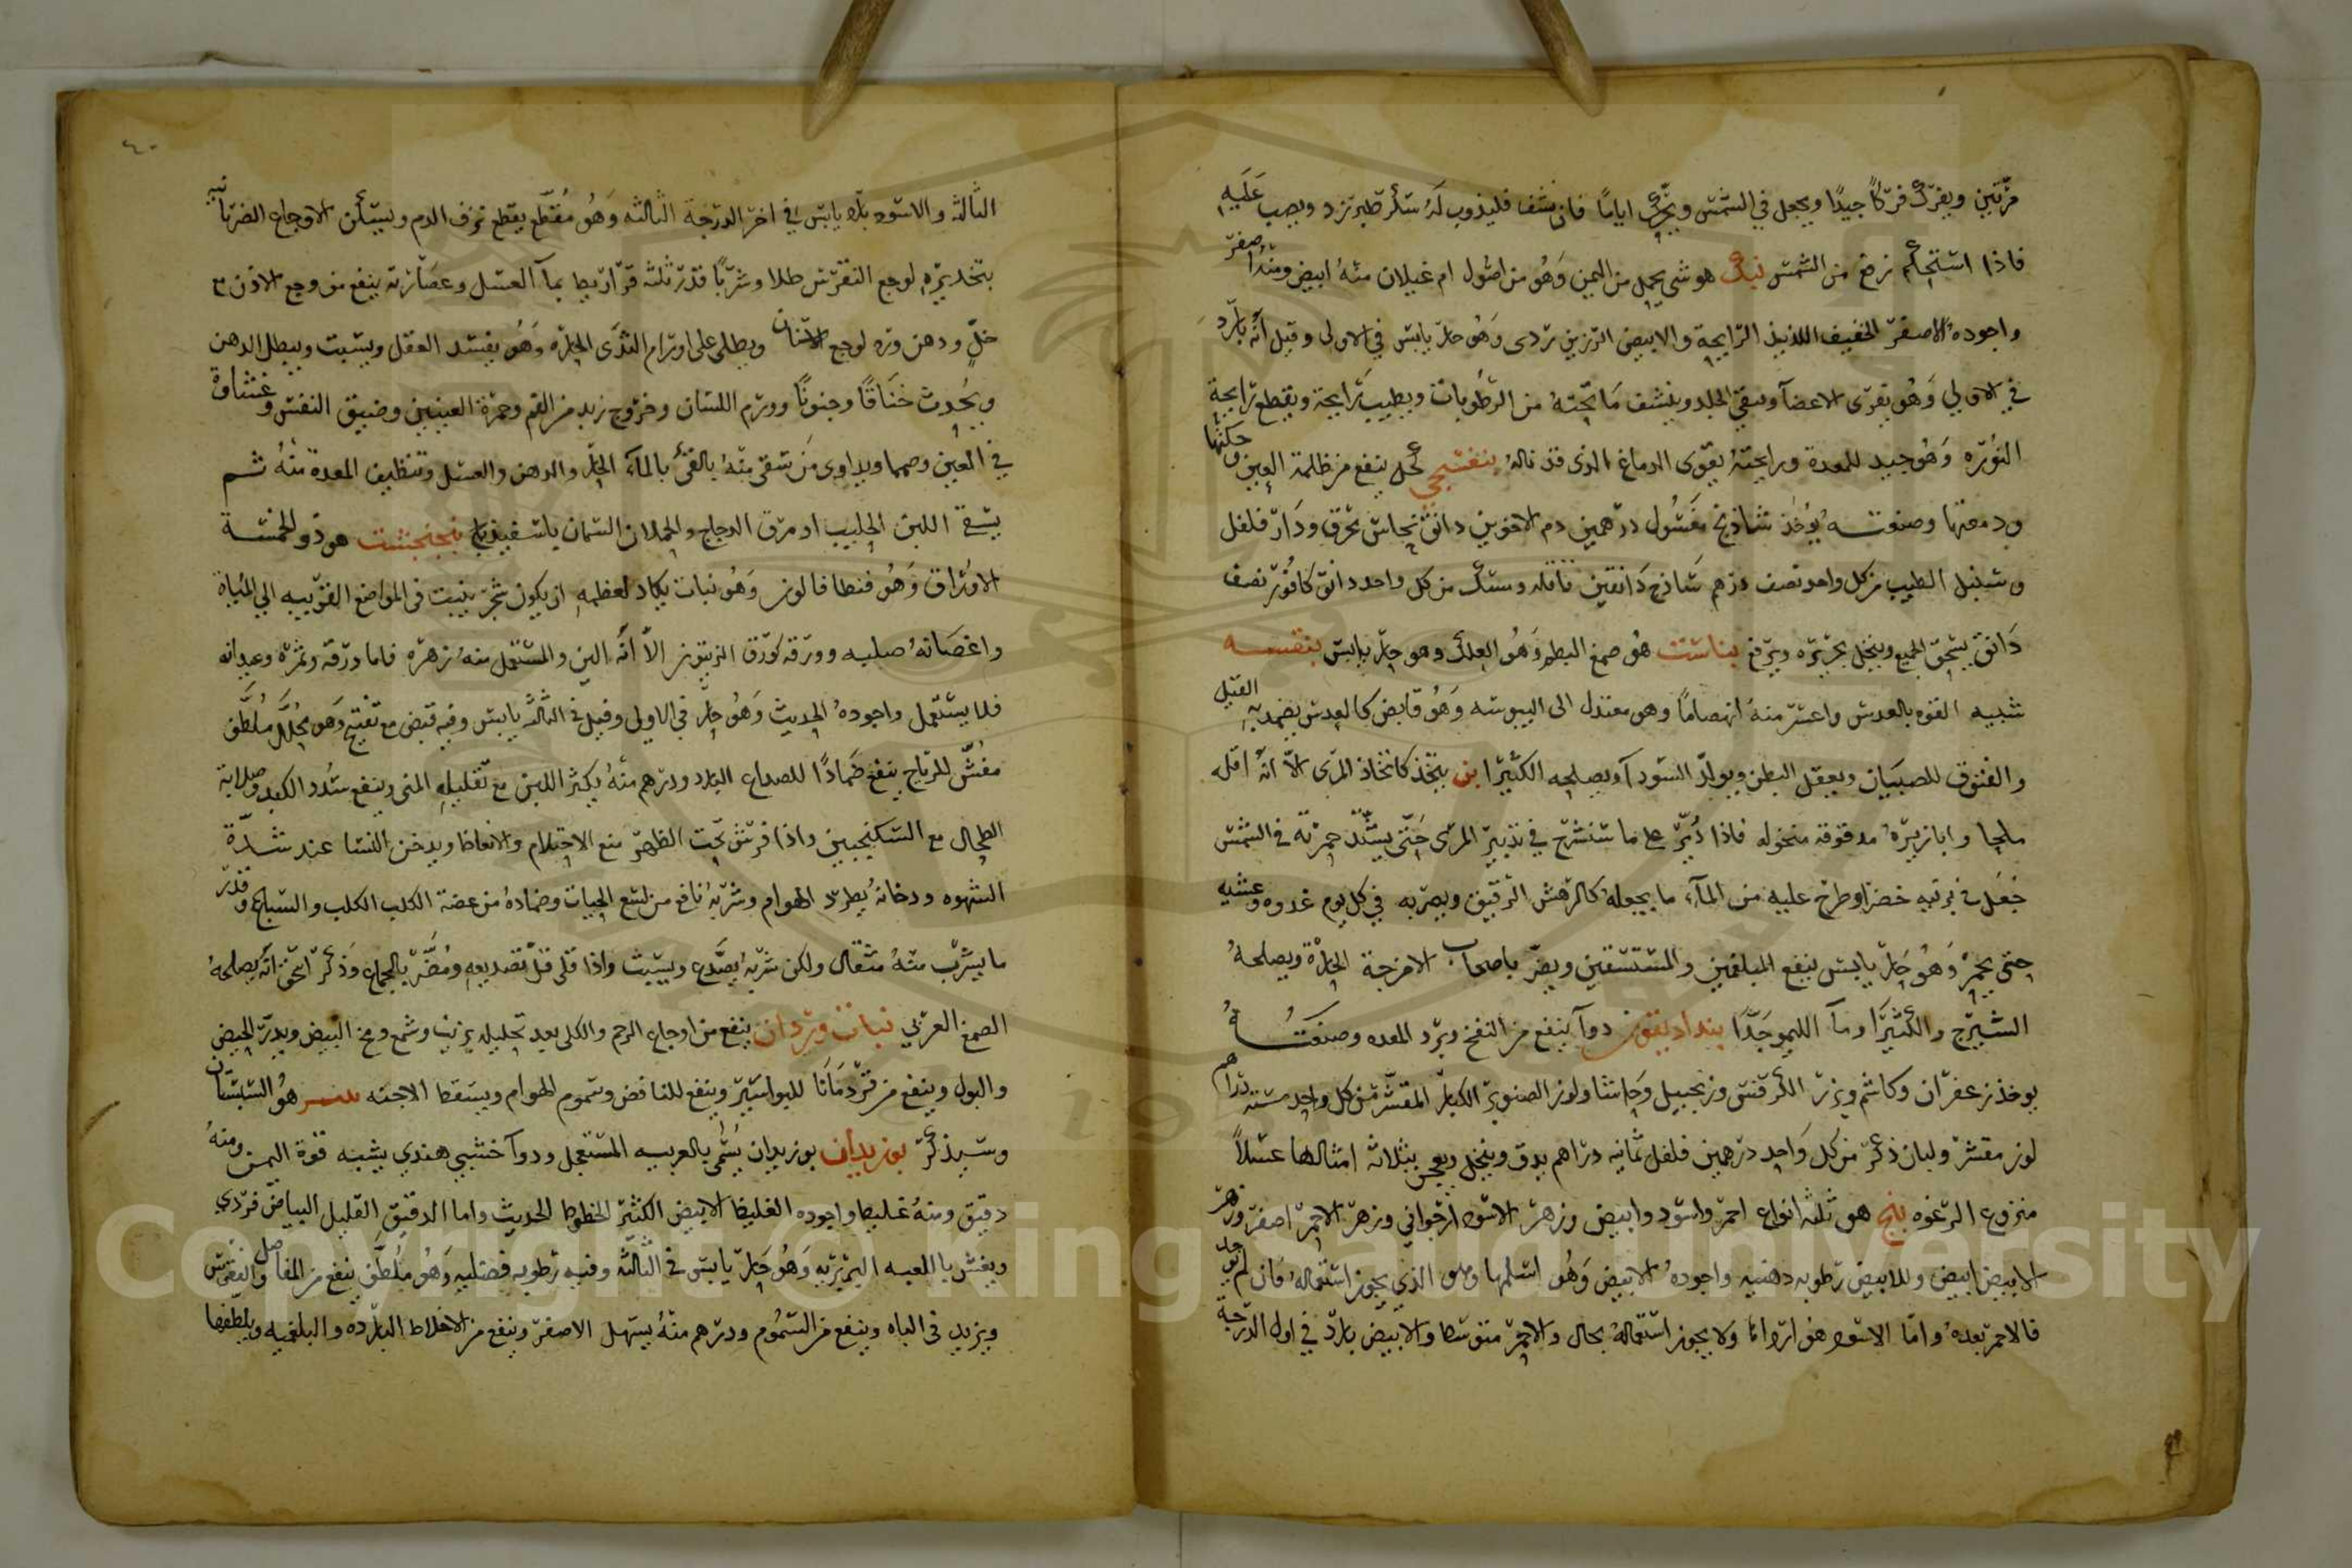 مرتين ويفرك فركا جيدا ويجعل في الشمس ويحرك اياما فان نشف فليذوب له سكر طبرزد ويصب عليه
فاذا استحكم نزع من الشمس بنك هو شي يحمل من اليمن وهو من اصول ام غيلان منه ابيض ومنه اصفر
واجوده الاصفر الخفيف اللذيذ الرايحة والابيض الرزين ردى وهو حار يابس في الاولى وقيل انه بارد
في الاولي وهو يقوى الاعضآ وينقي الجلد وينشف ما تحته من الرطوبات ويطيب رايحة ويقطع رايحة
النوره وهو جيد للمعدة ورايحته يقوى الدماغ الذى قد ناله بنفسجي كحل ينفع من ظلمة العين وحكتها
ودمعتها وصفته يؤخذ شاذنج مغسول درهمين دم الاخوين دانق نحاس محرق ودار فلفل
وسنبل الطيب من كل واحد نصف درهم ساذج دانقين قاقله ومسك من كل واحد دانق كافور نصف
دانق يسحق الجميع وينخل بحريره ويرفع بناست هو صمغ البطم وهو العلك وهو حار يابس بنقسه
شبيه القوه بالعدس واعسر منه انهضاما وهو معتدل الى اليبوسه وهو قابض كالعدس يضمد به القيل
والفتوق للصبيان ويعقل البطن ويولد السودآ ويصلحه الكثيرا بن يتخذ كاتخاذ المرى الا انه اقل
ملحا وابازيره مدقوقه منخوله فاذا دبر على ما سنشرح في تدبير المرى حتى يشتد حمرته في الشمس
جعل في برنيه خضرا وطرح عليه من المآء ما يجعله كالرهش الرقيق ويضربه في كل يوم غدوه وعشيه
حتى يحمر وهو حار يابس ينفع المبلغمين والمستسقين ويضر باصحاب الامزجة الحارة ويصلحه
الشيرج والكثيرا ومآ الليمو جدا بنداديقون دوآ ينفع من النفخ وبرد المعده وصنعته
يوخذ زعفران وكاشم وبزر الكرفس وزنجبيل وحاشا ولوز الصنوبر الكبار المقشر من كل واحد سته دراهم
لوز مقشر ولبان ذكر من كل واحد درهمين فلفل ثمانيه دراهم يدق وينخل ويعجن بثلاثه امثالها عسلا
منزوع الرغوه بنج هو ثلثه انواع احمر واسود وابيض وزهر الاسود ارجواني وزهر الاحمر اصفر وزهر
الابيض ابيض وللابيض رطوبه دهنيه واجوده الابيض وهو اسلمها وهو الذي يجوز استعماله فان لم يوجد
فالاحمر بعده واما الاسود هو ارداها ولا يجوز استعماله بحال والاحمر متوسط والابيض بارد في اول الدرجة
٤٠
الثالثه والاسود بارد يابس في اخر الدرجة الثالثه وهو مقطع يقطع نزف الدم ويسكن الاوجاع الضربانيه
بتخديره لوجع النقرس طلا وشربا قدر ثلثه قراريط بمآ العسل وعصارته ينفع من وجع الاذن
خل ودهن ورد لوجع الاسنان ويطلى على اورام الثدى الحاره وهو يفسد العقل ويسبت ويبطل الذهن
ويحدث خناقا وجنونا وورم اللسان وخروج زبد من الفم وحمرة العينين وضيق النفس وغشاوة
في العين وصمما ويداوى من سقى منه بالقئ بالمآء الحار والدهن والعسل وتنظيف المعدة منه ثم
يسقى اللبن الحليب او مرق الدجاج والحملان السمان باسفيذباج بنجنجشت هو ذو الخمسة
الاوراق وهو فنطافالون وهو نبات يكاد لعظمه ان يكون شجر ينبت فى المواضع القريبه الي المياة
واغصانه صلبه وورقه كورق الزيتون الا انه الين والمستعمل منه زهره فاما ورقه وثمره وعيدانه
فلا يستعمل واجوده الحديث وهو حار في الاولى وقيل في الثالثه يابس وفيه قبض مع تفتيح وهو محلل ملطف
مفش للرياح ينفع ضمادا للصداع البارد ودرهم منه يكثر اللبن مع تقليله المنى وينفع سدد الكبد وصلابة
الطحال مع السكنجبين واذا فرش تحت الظهر منع الاحتلام والانعاظ ويدخن النسا عند شدة
الشهوه ودخانه يطرد الهوام وشربه نافع من لسع الحيات وضماده من عضة الكلب الكلب والسباع وقدر
ما يشرب منه مثقال ولكن شربه يصدع ويسبت واذا قلى قل تصديعه ومضر بالجماع وذكر اسحق انه يصلحه
الصمغ العربي نبات وردان ينفع من اوجاع الرحم والكلى بعد تحليله بزيت وشمع ومخ البيض ويدر الحيض
والبول وينفع من قردمانا للبواسير وينفع للنافض وسموم الهوام ويسقط الاجنه هو السبستان
وسيذكر بوزيدان بوزيدان يسمى بالعربيه المستعجل ودوآ خشبي هندي يشبه قوة البهمن ومنه
دقيق ومنه غليظ واجوده الغليظ الابيض الكثير الخطوط الحديث واما الدقيق القليل البياض فردي
ويغش باللعبه البربريه وهو حار يابس في الثالثه وفيه رطوبه فضليه وهو ملطف ينفع من المفاصل والنقرس
ويزيد فى الباه وينفع من السموم ودرهم منه يسهل الاصفر وينفع من الاخلاط البارده والبلغميه ويلطفها
Copyright © King Saud University